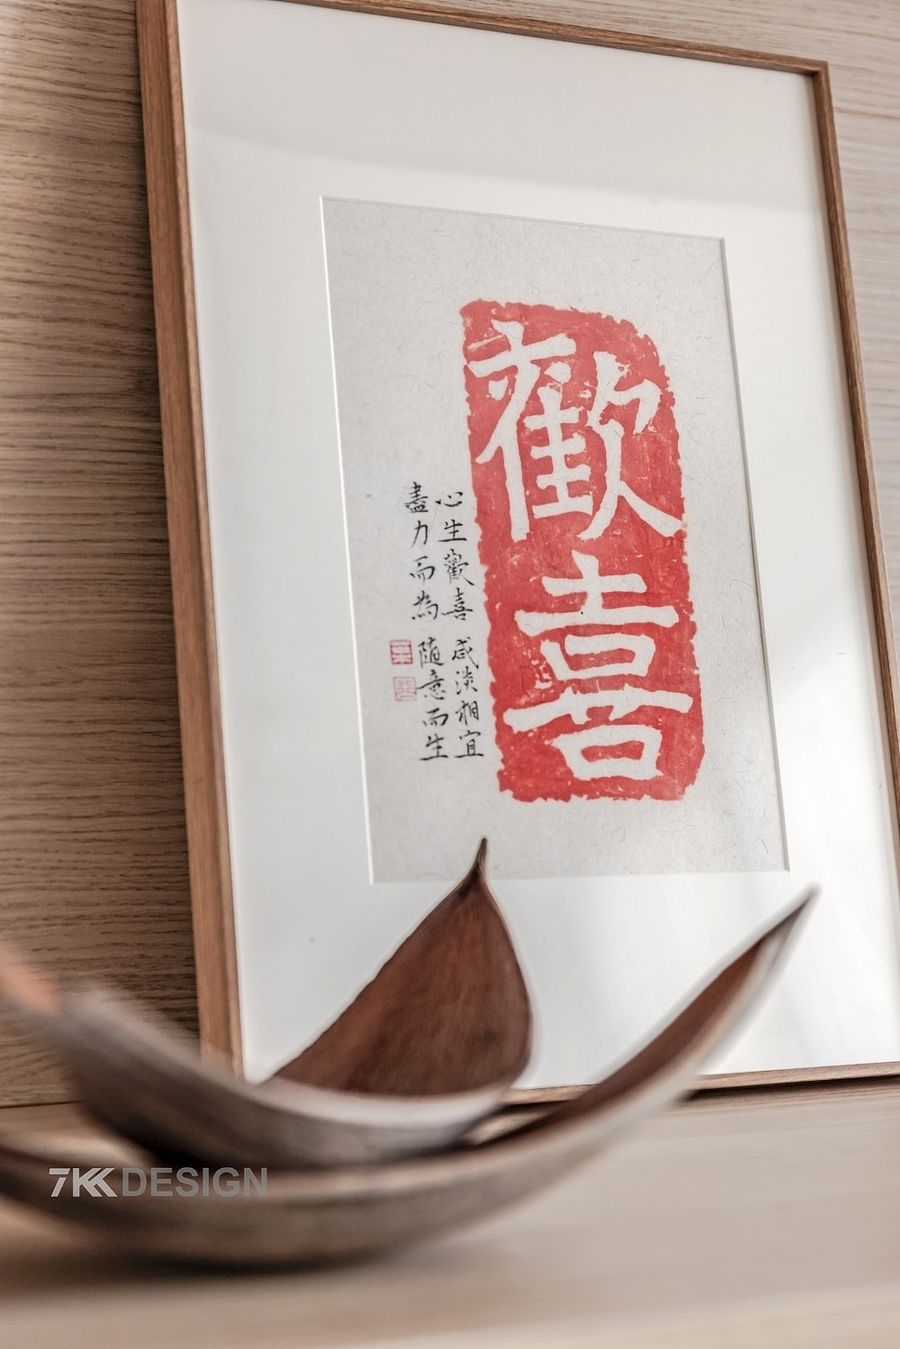 歡喜
心生歡喜 咸淡相宜
盡力而為 隨意而生
7KK DESIGN